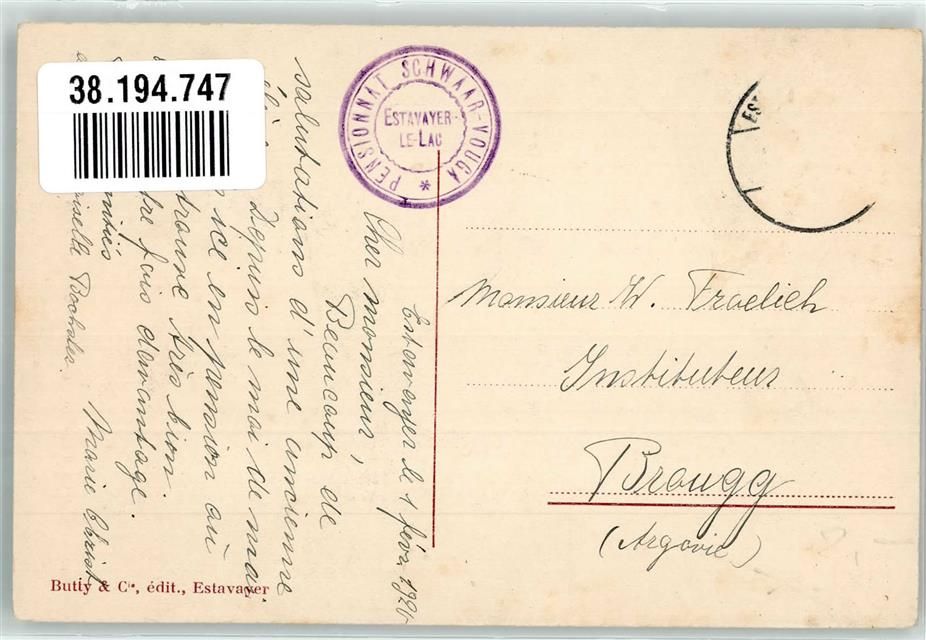 38.194.747
PENSIONNAT SCHWAAR-VOUGA
ESTAVAYER-
LE-LAC
EST
Estavayer le 1 fév. 1920
Cher monsieur,
Beaucoup de
salutations d'une ancienne
Depuis le moi de mai
en pension où
trouve très bien.
tre fois davantage.
mitiés
Marie Christ
Monsieur W. Froelich
Instituteur
Brougg
(Argovie)
Butty & Cie, édit., Estavayer